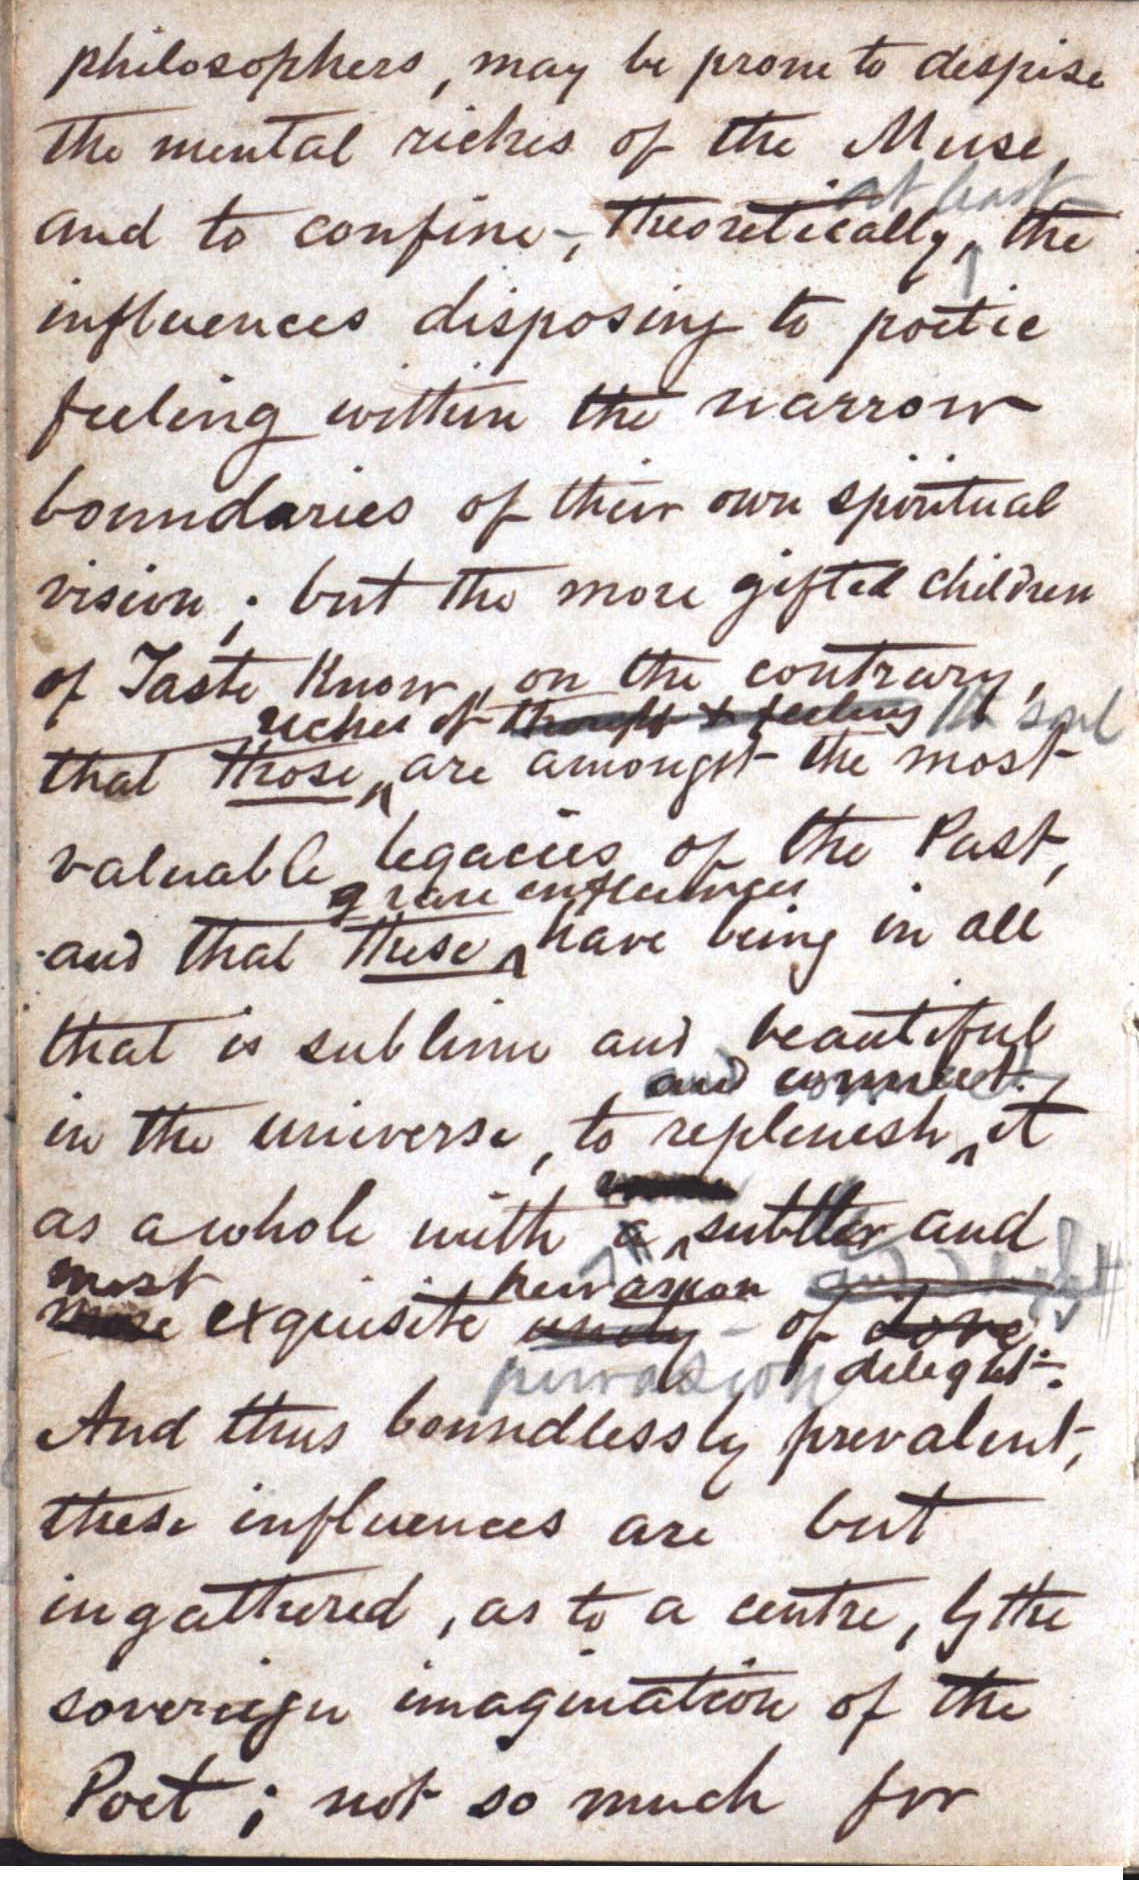 philosophers, may be prone to despise
the mental riches of the Muse,
at least
and to confine, theoretically, the
influences disposing to poetic
feeling within the narrow
boundaries of their own spiritual
vision; but the more gifted children
of Taste know, on the contrary,
riches of thought & feeling soul
that those are amongst the most
valuable legacies of the Past,
influences
and that these have being in all
that is sublime and beautiful
and connect
in the universe, to replenish it
as a whole with a subtler and
most
exquisite of Love
pervasion delight.
And thus boundlessly prevalent,
these influences are but
ingathered, as to a centre, by the
sovereign imagination of the
Poet; not so much for